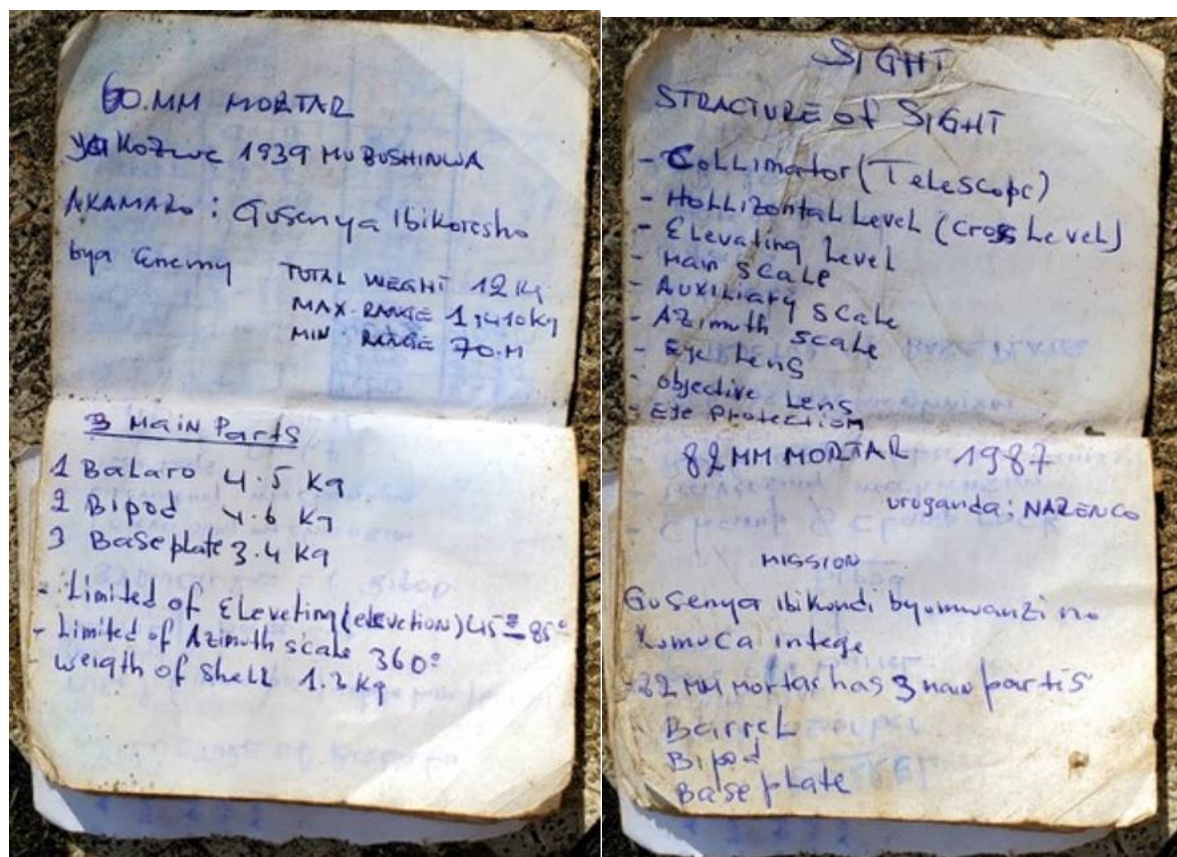 60.MM MORTAR
yakozwe 1939 MU BUSHINWA
AKAMARO : Gusenya Ibikoresho
bya Enemy
TOTAL WEGHT 12 Kg
MAX. RANGE 1,410Kg
MIN RANGE 70.M
3 Main Parts
1 Balaro 4.5 Kg
2 Bipod 4.6 Kg
3 Base plate 3.4 Kg
- Limited of Eleveting (elevetion) 45°-85°
- Limited of Azimuth scale 360°
weigth of Shell 1.3 Kg
SIGHT
STRACTURE of SIGHT
- Collimator (Telescope)
- Hollizontal Level (Cross Level)
- Elevating Level
- Main Scale
- Auxiliary Scale
- Azimuth Scale
- Eye Lens
- objective Lens
- Eye Protection
82 MM MORTAR 1987
uruganda : NAZENCO
MISSION
Gusenya ibikundi byumwanzi no
kumuca intege
- 82 MM mortar has 3 main partis
Barrel
Bipod
Base plate